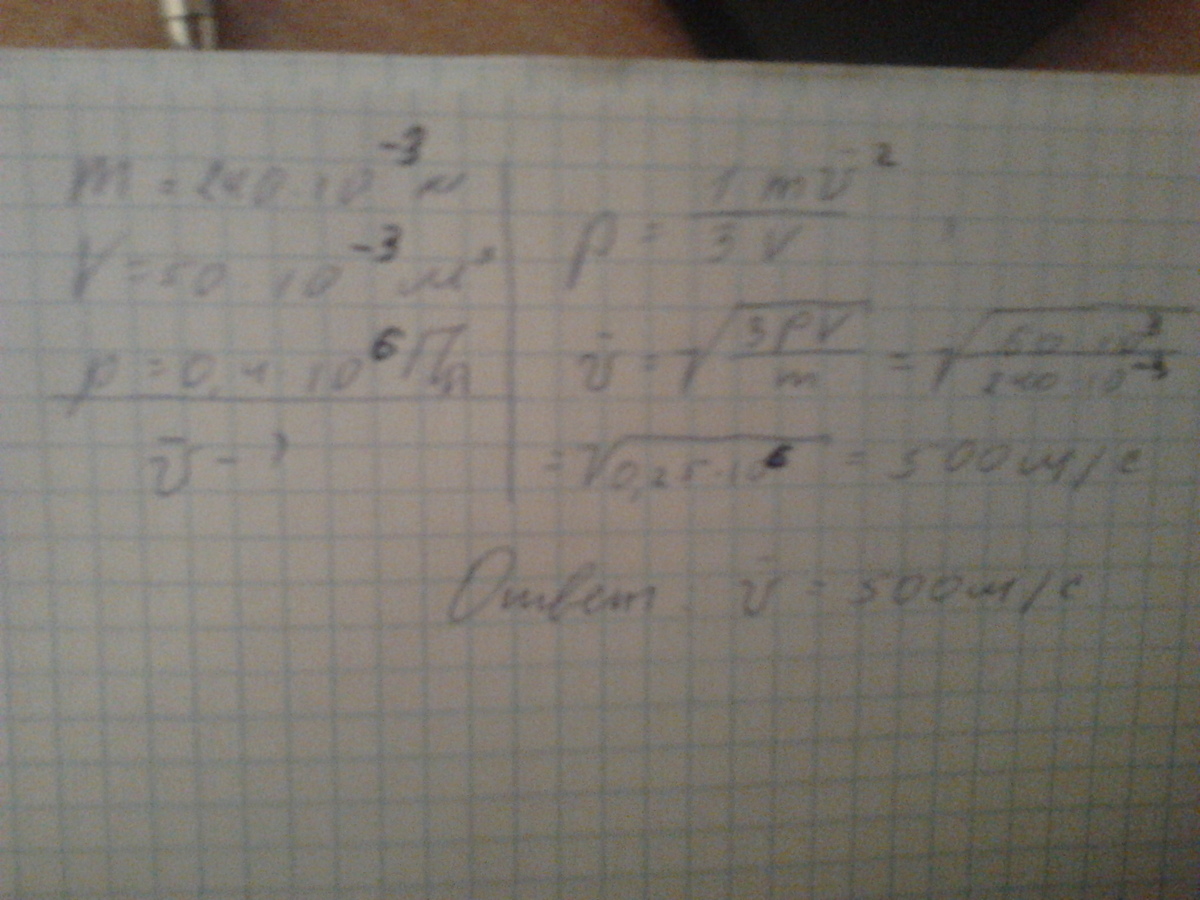 m = 240 · 10⁻³ кг
V = 50 · 10⁻³ м³
p = 0,4 · 10⁶ Па
v̄ - ?
p = 1 mv̄² / 3 V
v̄ = √(3pV / m) = √(60 · 10³ / 240 · 10⁻³)
= √(0,25 · 10⁶) = 500 м/с
Ответ. v̄ = 500 м/с